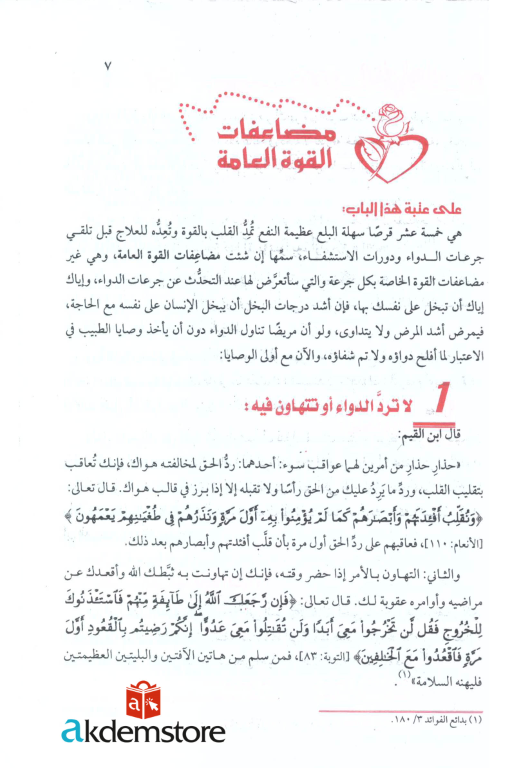 ٧
مضاعفات
القوة العامة
على عتبة هذا الباب:
هي خمسة عشر قرصًا سهلة البلع عظيمة النفع تمُدُّ القلب بالقوة وتُعِدُّه للعلاج قبل تلقي
جرعات الدواء ودورات الاستشفاء، سمِّها إن شئت مضاعِفات القوة العامة، وهي غير
مضاعفات القوة الخاصة بكل جرعة والتي سأتعرَّض لها عند التحدُّث عن جرعات الدواء، وإياك
إياك أن تبخل على نفسك بها، فإن أشد درجات البخل أن يبخل الإنسان على نفسه مع الحاجة،
فيمرض أشد المرض ولا يتداوى، ولو أن مريضًا تناول الدواء دون أن يأخذ وصايا الطبيب في
الاعتبار لما أفلح دواؤه ولا تم شفاؤه، والآن مع أولى الوصايا:
1 لا تردَّ الدواء أو تتهاون فيه:
قال ابن القيم:
«حذارِ حذارِ من أمرين لهما عواقب سوء: أحدهما: ردُّ الحق لمخالفته هواك، فإنك تُعاقب
بتقليب القلب، وردِّ ما يَرِدُ عليك من الحق رأسًا ولا تقبله إلا إذا برز في قالب هواك. قال تعالى:
﴿وَنُقَلِّبُ أَفْـِٔدَتَهُمْ وَأَبْصَٰرَهُمْ كَمَا لَمْ يُؤْمِنُوا۟ بِهِۦٓ أَوَّلَ مَرَّةٍ وَنَذَرُهُمْ فِى طُغْيَٰنِهِمْ يَعْمَهُونَ﴾
[الأنعام: ١١٠]، فعاقبهم على ردِّ الحق أول مرة بأن قلَّب أفئدتهم وأبصارهم بعد ذلك.
والثاني: التهاون بالأمر إذا حضر وقته، فإنك إن تهاونت به ثبَّطك الله وأقعدك عن
مراضيه وأوامره عقوبة لك. قال تعالى: ﴿فَإِن رَّجَعَكَ ٱللَّهُ إِلَىٰ طَآئِفَةٍ مِّنْهُمْ فَٱسْتَـْٔذَنُوكَ
لِلْخُرُوجِ فَقُل لَّن تَخْرُجُوا۟ مَعِىَ أَبَدًا وَلَن تُقَٰتِلُوا۟ مَعِىَ عَدُوًّا ۖ إِنَّكُمْ رَضِيتُم بِٱلْقُعُودِ أَوَّلَ
مَرَّةٍ فَٱقْعُدُوا۟ مَعَ ٱلْخَٰلِفِينَ﴾ [التوبة: ٨٣]، فمن سلم من هاتين الآفتين والبليتين العظيمتين
فليهنه السلامة»(١).
(١) بدائع الفوائد ٣/ ١٨٠.
a
akdemstore